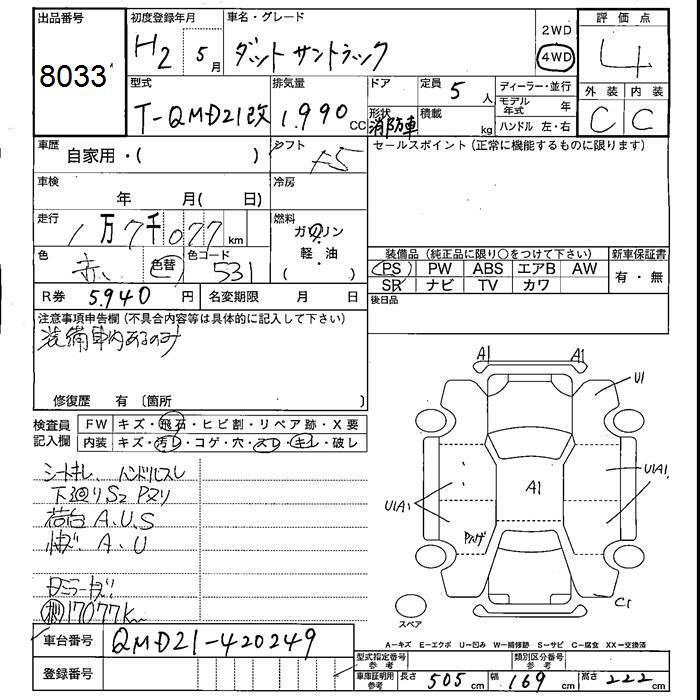 出品番号 初度登録年月 車名・グレード 2WD 4WD 評価点
8033 H2 5月 ダットサントラック 4
型式 排気量 ドア 定員 5人 ディーラー・並行 外装 内装
T-QMD21改 1.990cc 形状 消防車 積載 kg モデル年式 年 C C
ハンドル 左・右
車歴 自家用・( ) シフト F5 セールスポイント(正常に機能するものに限ります)
車検 年 月( 日) 冷房
走行 1万7千077km 燃料 ガソリン・軽・油 ( )
色 赤 色替 色コード 531
装備品(純正品に限り○をつけて下さい) 新車保証書
PS PW ABS エアB AW 有・無
SR ナビ TV カワ
R券 5.940円 名変期限 月 日 後日品
注意事項申告欄(不具合内容等は具体的に記入して下さい)
装備車内あるのみ
修復歴 有 〔箇所 〕
検査員記入欄 FW キズ・飛石・ヒビ割・リペア跡・X要
内装 キズ・汚レ・コゲ・穴・スレ・キレ・破レ
シートキレ、ハンドルスレ
下廻りS2 Pヌリ
荷台 A、U、S
A、U
17077km
A1 A1
U1
U1A1 A1 U1A1
Pハゲ
C1
スペア
A－キズ E－エクボ U－凹み W－補修跡 S－サビ C－腐食 XX－交換済
車台番号 QMD21-420249
型式指定番号 参考 類別区分番号 参考
登録番号 車庫証明用 参考 長さ 505cm 幅 169cm 高さ 222cm